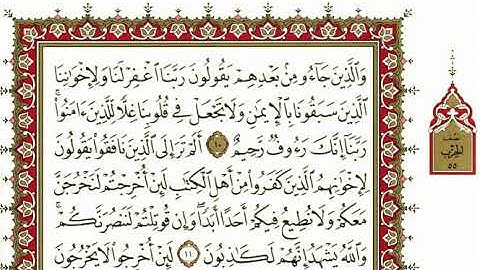 وَٱلَّذِينَ جَآءُو مِنۢ بَعْدِهِمْ يَقُولُونَ رَبَّنَا ٱغْفِرْ لَنَا وَلِإِخْوَٰنِنَا
ٱلَّذِينَ سَبَقُونَا بِٱلْإِيمَٰنِ وَلَا تَجْعَلْ فِى قُلُوبِنَا غِلًّا لِّلَّذِينَ ءَامَنُوا۟
رَبَّنَآ إِنَّكَ رَءُوفٌ رَّحِيمٌ ١٠ أَلَمْ تَرَ إِلَى ٱلَّذِينَ نَافَقُوا۟ يَقُولُونَ
لِإِخْوَٰنِهِمُ ٱلَّذِينَ كَفَرُوا۟ مِنْ أَهْلِ ٱلْكِتَٰبِ لَئِنْ أُخْرِجْتُمْ لَنَخْرُجَنَّ
مَعَكُمْ وَلَا نُطِيعُ فِيكُمْ أَحَدًا أَبَدًا وَإِن قُوتِلْتُمْ لَنَنصُرَنَّكُمْ
وَٱللَّهُ يَشْهَدُ إِنَّهُمْ لَكَٰذِبُونَ ١١ لَئِنْ أُخْرِجُوا۟ لَا يَخْرُجُونَ
الحزب
٥٥